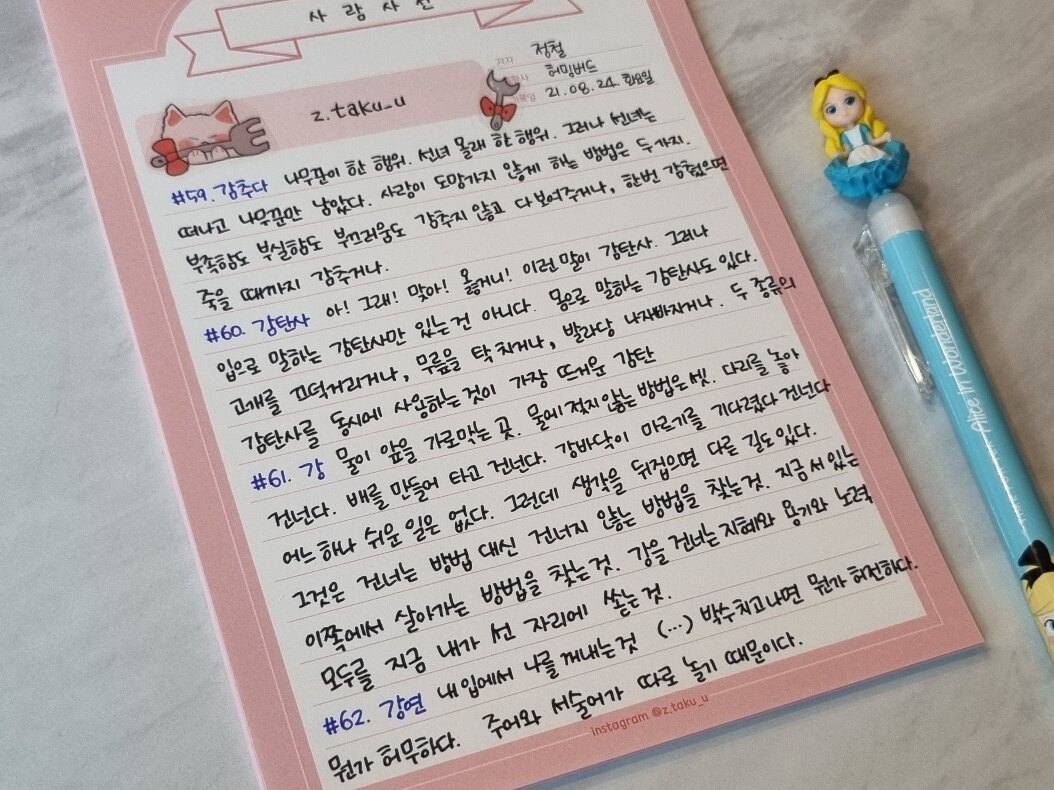 사람사전
저자 정철
출판사 허밍버드
기록일 21. 08. 24. 화요일
z.taku_u
#59. 감추다 나무꾼이 한 행위. 선녀 몰래 한 행위. 그러나 선녀는
떠나고 나무꾼만 남았다. 사랑이 도망가지 않게 하는 방법은 두 가지.
부족함도 부실함도 부끄러움도 감추지 않고 다 보여주거나, 한번 감췄으면
죽을 때까지 감추거나.
#60. 감탄사 아! 그래! 맞아! 옳거니! 이런 말이 감탄사. 그러나
입으로 말하는 감탄사만 있는 건 아니다. 몸으로 말하는 감탄사도 있다.
고개를 끄덕거리거나, 무릎을 탁 치거나, 발라당 나자빠지거나. 두 종류의
감탄사를 동시에 사용하는 것이 가장 뜨거운 감탄
#61. 강 물이 앞을 가로막는 곳. 물에 젖지 않는 방법은 셋. 다리를 놓아
건넌다. 배를 만들어 타고 건넌다. 강바닥이 마르기를 기다렸다 건넌다
어느 하나 쉬운 일은 없다. 그런데 생각을 뒤집으면 다른 길도 있다.
그것은 건너는 방법 대신 건너지 않는 방법을 찾는 것. 지금 서 있는
이쪽에서 살아가는 방법을 찾는 것. 강을 건너는 지혜와 용기와 노력
모두를 지금 내가 선 자리에 쏟는 것.
#62. 강연 내 입에서 나를 꺼내는 것 (...) 박수치고 나면 뭔가 허전하다.
뭔가 허무하다. 주어와 서술어가 따로 놀기 때문이다.
instagram @z.taku_u
Alice in Wonderland